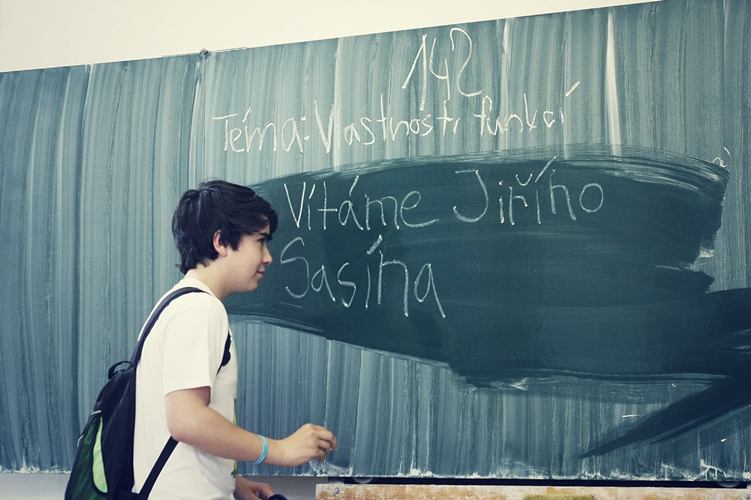 142
Téma: Vlastnosti funkcí
Vítáme Jiřího
Sasína